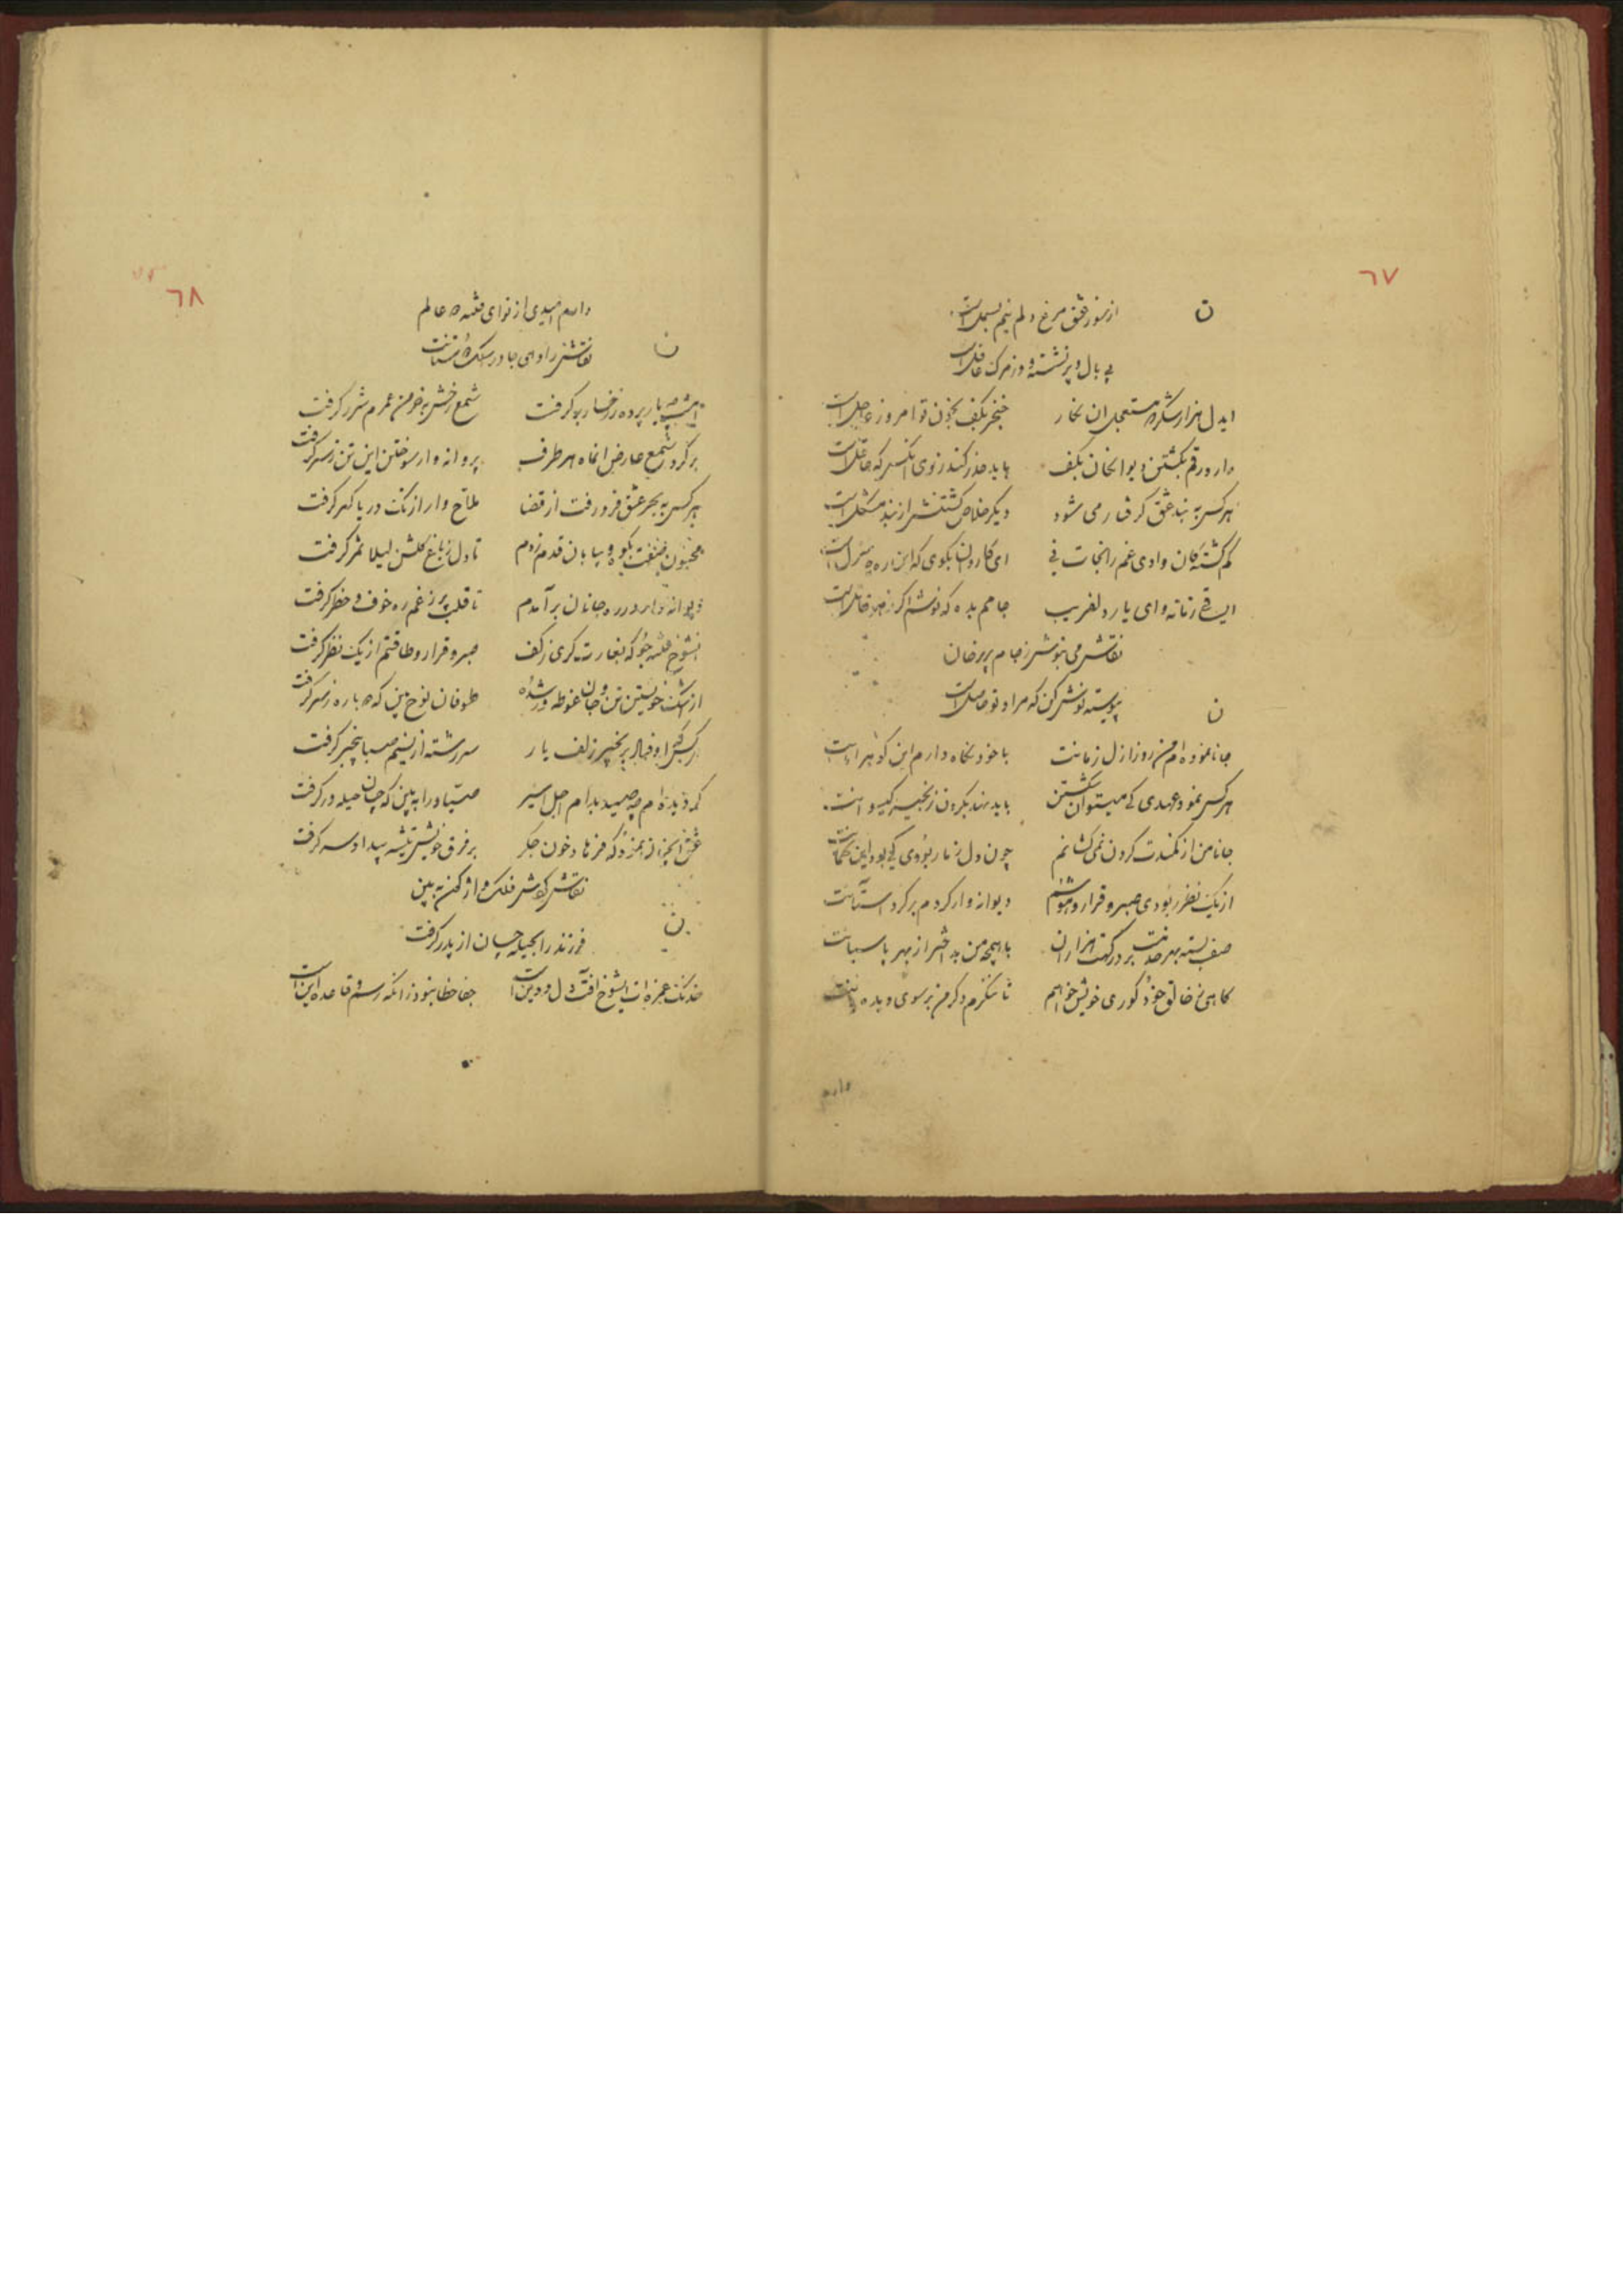 ٦٧
ن
از سوز عشق مرغ دلم نیم بسمل است
بی بال و پر نشسته و از مرگ غافل است
ایدل هزار شکر که مستعجل ان نکار
خنجر بکف بخون تو امروز عاجل است
دارد رقم بکشتن دیوانکان بکف
باید حذر کند ز توی انکس که عاقل است
هر کس به بند عشق گرفتار می شود
دیکر خلاص کشتنش از بند مشکل است
کم کشته کان وادی غم را نجات نی
ای کاروان بکوی که این ره منزل است
ایساقی زمانه وای یار دلفریب
جامم بده که نوشم اکر زهر قاتل است
نقاش می بنوش ز جام پریرخان
پیوسته نوش کن که مراد تو حاصل است
ن
جانا نموده ام من روز ازل زمانت
با خود نکاه دارم این کوهر
هر کس نمود عهدی کی میتوان شکستن
باید نهد بکردن زنجیر کیسوانت
جانا من از کمندت کردن نمی کشانم
چون دل ز ما ربودی کی بود این
از یک نظر ربودی صبر و قرار و هوشم
دیوانه وار کردم بر کرد آستانت
صف بسته بهر خدمت بر درکهت هزاران
با همچو من به از بهر پاسبانت
کاهی ز خالق خود کوری خویش خواهم
تا ننکرم دکر من بر سوی دیده
دارم
٦٨
دارم امیدی از تو ای فتنه عالم
نقاش را دهی جا در سلک
ن
امشب چه یار پرده ز رخسار بر کرفت
شمع رخش به خرمن عمرم شرر کرفت
بر کرد شمع عارض انماه هر طرف
پروانه وار سوختن این تن ز سر کرفت
هر کس به بحر عشق فرو رفت از قضا
ملاح وار از تک دریا کهر کرفت
مجنون صفت بکوه و بیابان قدم زدم
تا دل ز باغ کلشن لیلا ثمر کرفت
دیوانه وار در ره جانان بر آمدم
تا قلب پر ز غم ره خوف و خطر کرفت
انشوخ فتنه جو که بغارت کری ز کف
صبر و قرار و طاقتم از یک نظر کرفت
از اشک خویشتن تن و جان غوطه ور شده
طوفان نوح بین که دوباره ز سر کرفت
زلف یار
سر رشته از نسیم صبا بیخبر کرفت
که دیده ام چه صید بدام اجل اسیر
صیاد را به بین که چسان حیله در کرفت
عشق انچنان نمود که فرهاد خون جکر
بر فرق خویش تیشه بیداد سر کرفت
نقاش کوش فلک واژکون به بین
ن
فرزند را بحیله چسان از پدر کرفت
خدنک غمزه ات ایشوخ آفت دل و دین است
جفا خطا نبود زانکه رسم و قاعده این است